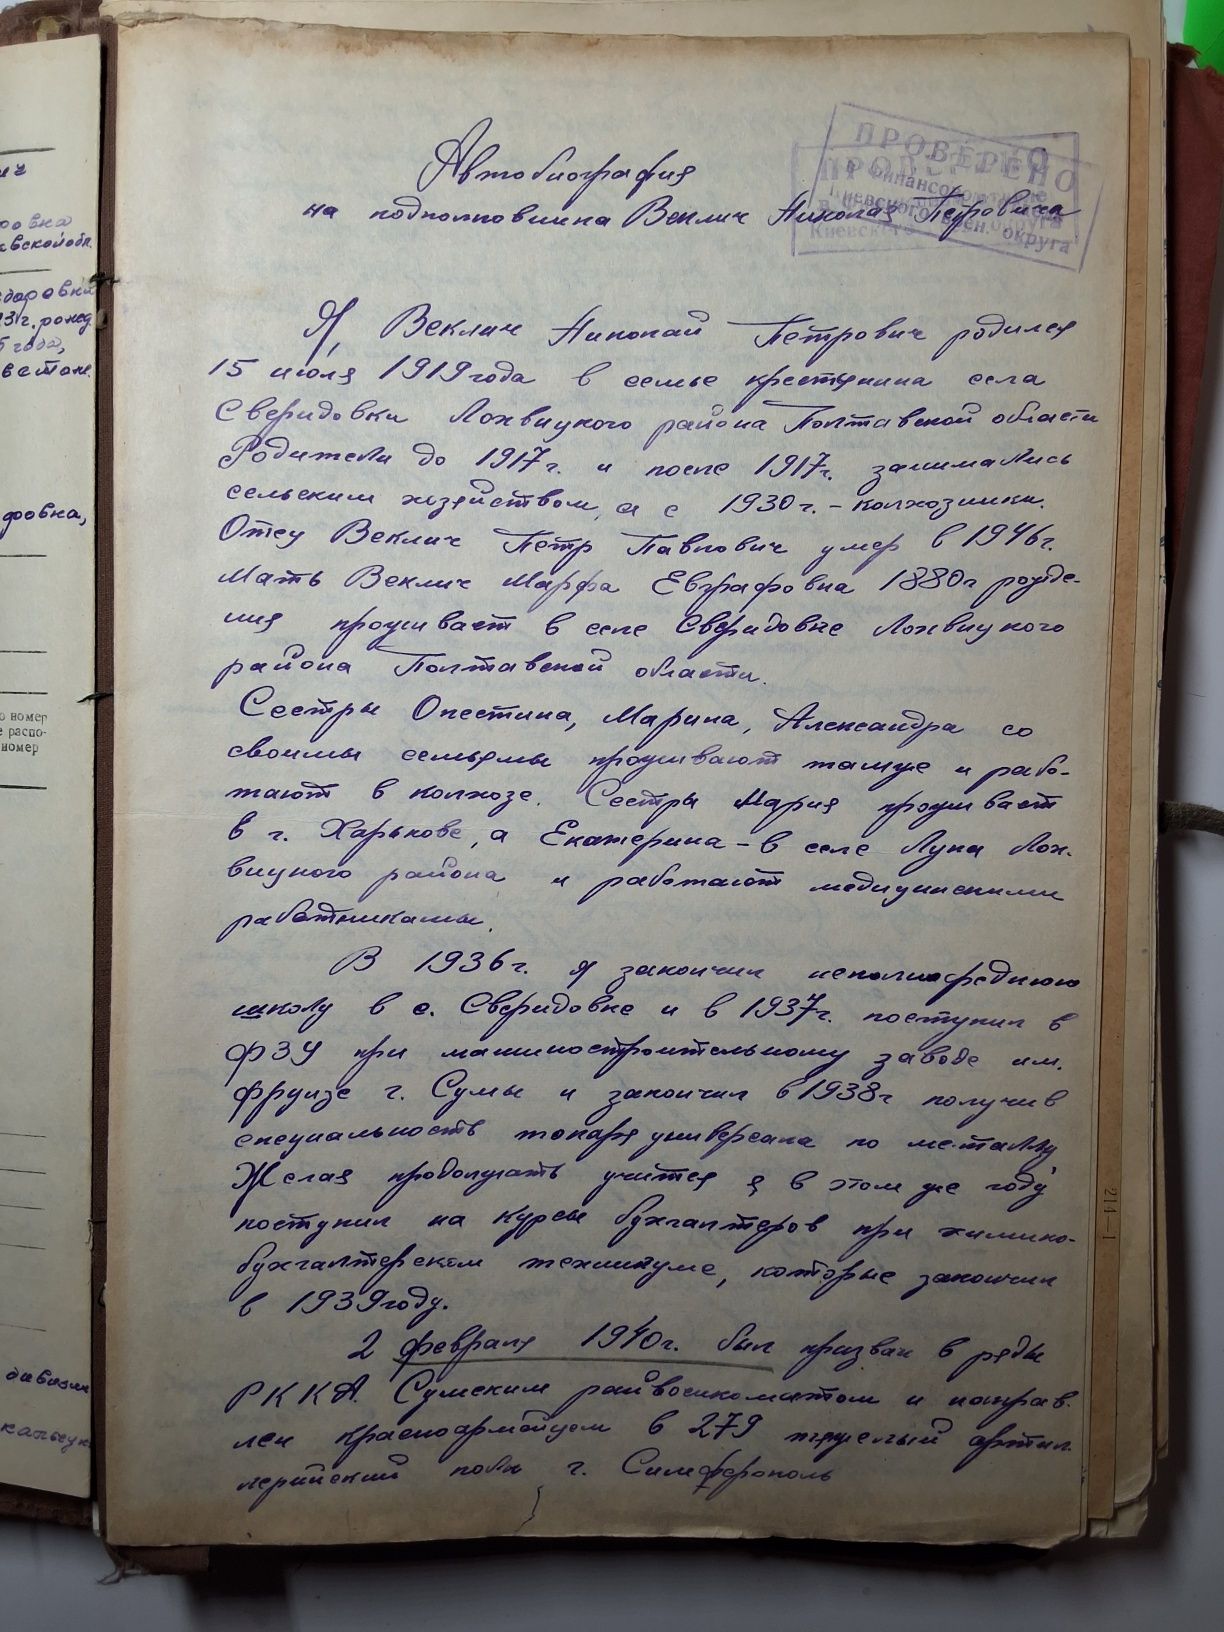 ПРОВЕРЕНО
Финансовый
Киевского Воен. округа
Автобиография
на подполковника Веклич Николая Петровича
Я, Веклич Николай Петрович родился
15 июля 1919 года в семье крестьянина села
Свередовки Лохвицкого района Полтавской области
Родители до 1917г. и после 1917г. занимались
сельским хозяйством, а с 1930 г. - колхозники.
Отец Веклич Пётр Павлович умер в 1946г.
Мать Веклич Марфа Евграфовна 1880г рожде-
ния проживает в селе Свередовке Лохвицкого
района Полтавской области.
Сестры Опестина, Марина, Александра со
своимы семьямы проживают тамже и рабо-
тают в колхозе. Сестры Мария проживает
в г. Харькове, а Екатерина - в селе Луки Лох.
вицкого района и работают медицинскими
работникамы.
В 1936г. я закончил неполносреднюю
школу в с. Свередовке и в 1937г. поступил в
ФЗУ при машиностроительному заводе им.
Фрунзе г. Сумы и закончил в 1938г получив
специальность токаря универсала по металлу
Желая продолжать учится я в этом же году
поступил на курсы бухгалтеров при химико-
бухгалтерском техникуме, которые закончил
в 1939 году.
2 февраля 1940г. был призван в ряды
РККА. Сумским райвоенкоматом и направ.
лен красноармейцем в 279 тяжелый артил
лерийский полк г. Симферополь
ровка
евской обл.
3г. рожд.
5 года,
фовна,
о номер
е распо-
номер
214—1